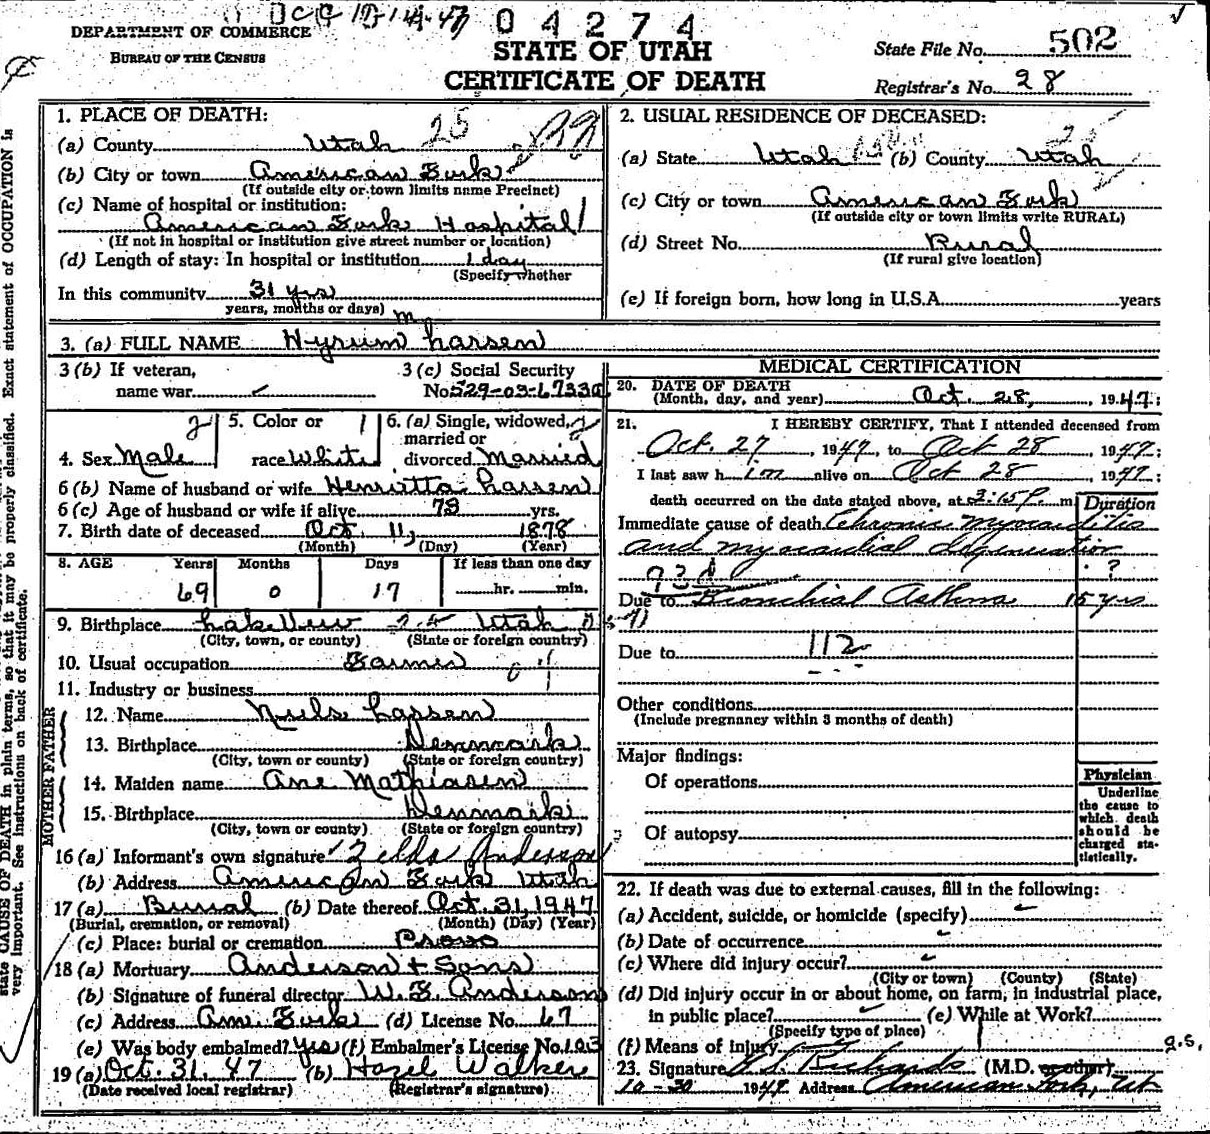 04274
DEPARTMENT OF COMMERCE
BUREAU OF THE CENSUS
STATE OF UTAH
CERTIFICATE OF DEATH
State File No. 502
Registrar's No. 28
state CAUSE OF DEATH in plain terms, so that it may be properly classified. Exact statement of OCCUPATION is
very important. See instructions on back of certificate.
1. PLACE OF DEATH: 25
(a) County Utah
(b) City or town American Fork
(If outside city or town limits name Precinct)
(c) Name of hospital or institution:
American Fork Hospital
(If not in hospital or institution give street number or location)
(d) Length of stay: In hospital or institution 1 day
(Specify whether
In this community 31 yrs
years, months or days)
2. USUAL RESIDENCE OF DECEASED:
(a) State Utah (b) County Utah
(c) City or town American Fork
(If outside city or town limits write RURAL)
(d) Street No. Rural
(If rural give location)
(e) If foreign born, how long in U.S.A. years
3. (a) FULL NAME Hyrum M Larsen
3 (b) If veteran,
name war
3 (c) Social Security
No. 529-03-6733A
4. Sex Male
5. Color or
race White
6. (a) Single, widowed,
married or
divorced Married
6 (b) Name of husband or wife Henrietta Larsen
6 (c) Age of husband or wife if alive 73 yrs.
7. Birth date of deceased Oct. 11, 1878
(Month) (Day) (Year)
8. AGE Years Months Days If less than one day
69 0 17 hr. min.
9. Birthplace Lake View Utah
(City, town, or county) (State or foreign country)
10. Usual occupation Farmer
11. Industry or business
FATHER
12. Name Niels Larsen
13. Birthplace Denmark
(City, town, or county) (State or foreign country)
MOTHER
14. Maiden name Ane Mathiasen
15. Birthplace Denmark
(City, town or county) (State or foreign country)
16 (a) Informant's own signature Zelda Anderson
(b) Address American Fork Utah
17 (a) Burial (b) Date thereof Oct. 31, 1947
(Burial, cremation, or removal) (Month) (Day) (Year)
(c) Place: burial or cremation Provo
18 (a) Mortuary Anderson + Sons
(b) Signature of funeral director W. F. Anderson
(c) Address Am. Fork (d) License No. 67
(e) Was body embalmed? Yes (f) Embalmer's License No. 103
19 (a) Oct. 31. 47 (b) Hazel Walker
(Date received local registrar) (Registrar's signature)
MEDICAL CERTIFICATION
20. DATE OF DEATH
(Month, day, and year) Oct. 28, 1947;
21. I HEREBY CERTIFY, That I attended deceased from
Oct. 27, 1947, to Oct 28 1947;
I last saw h im alive on Oct 28 1947;
death occurred on the date stated above, at 3:15 P. m.
Duration
Immediate cause of death Chronic myocarditis
and myocardial degeneration
?
Due to Bronchial Asthma 15 yrs
Due to 112
Other conditions
(Include pregnancy within 3 months of death)
Major findings:
Of operations
Of autopsy
Physician
Underline
the cause to
which death
should be
charged sta-
tistically.
22. If death was due to external causes, fill in the following:
(a) Accident, suicide, or homicide (specify)
(b) Date of occurrence
(c) Where did injury occur?
(City or town) (County) (State)
(d) Did injury occur in or about home, on farm, in industrial place,
in public place? (e) While at Work?
(Specify type of place)
(f) Means of injury
23. Signature Richards (M.D. or other)
10-30 1947 Address American Fork, Ut